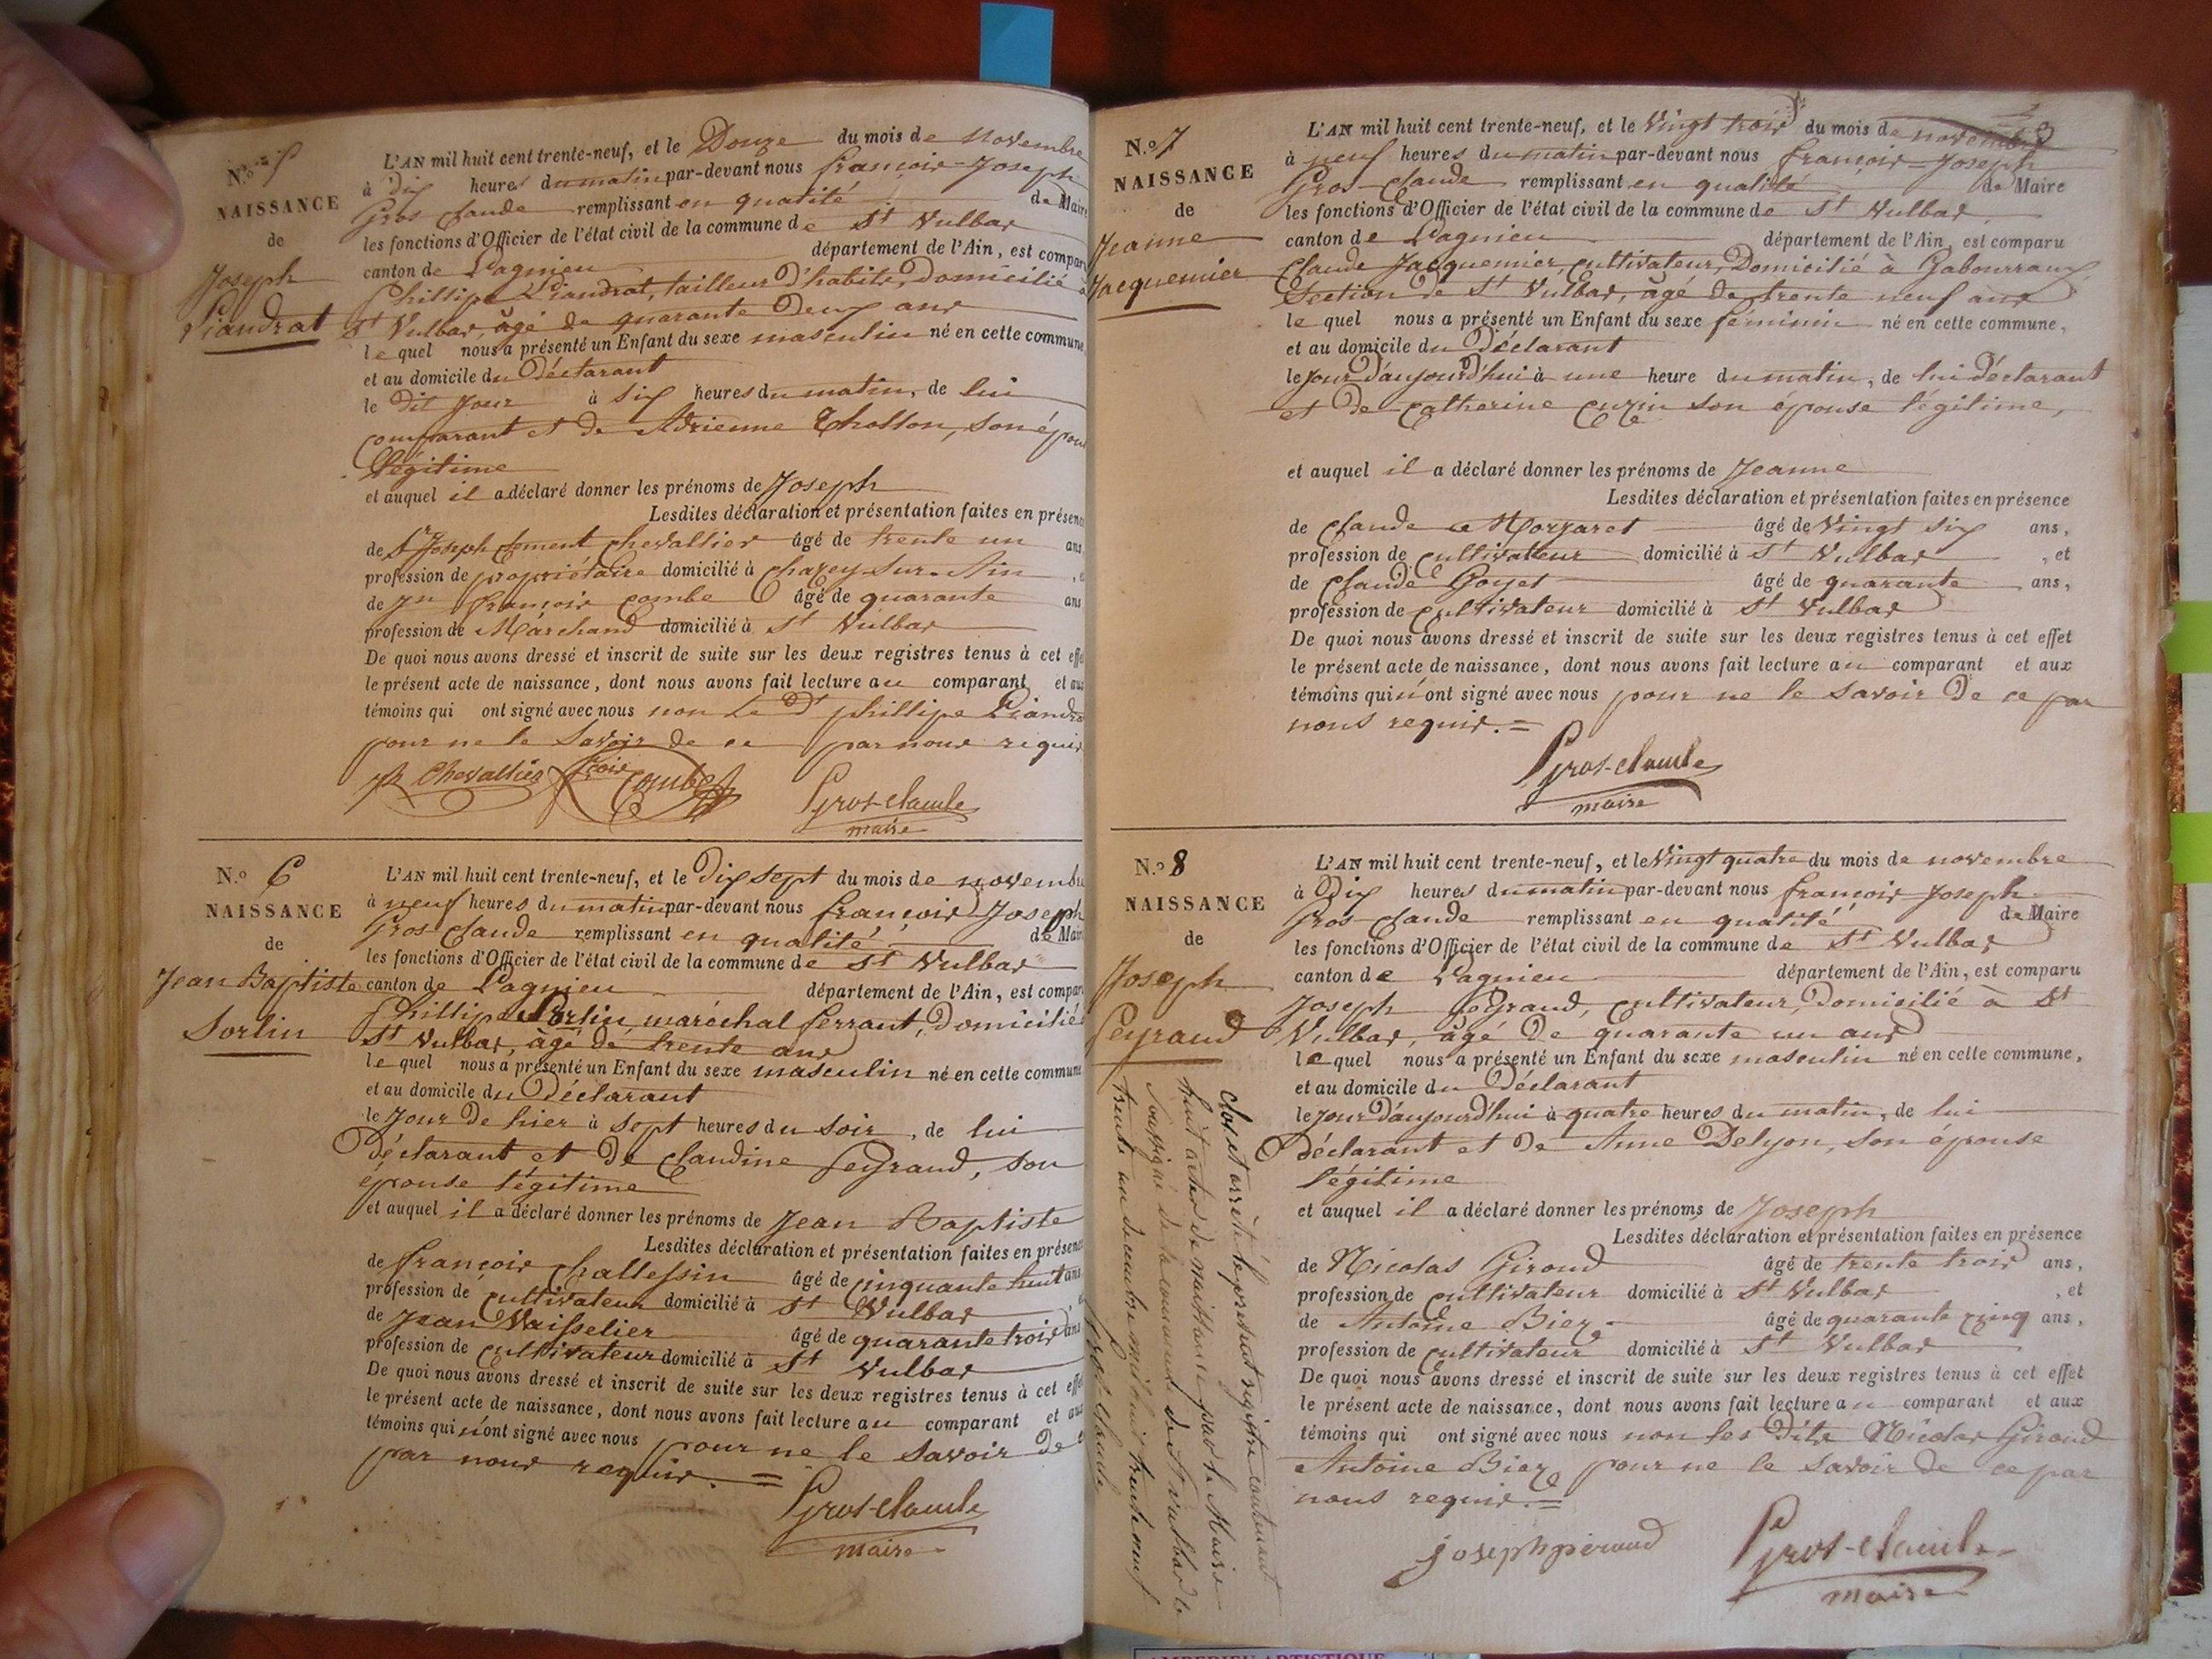 N.o 5
NAISSANCE
de
Joseph
Liandrat
L'AN mil huit cent trente-neuf, et le Douze du mois de novembre
à dix heures du matin par-devant nous françois-Joseph
Gros-Claude remplissant en qualité de Maire
les fonctions d'Officier de l'état civil de la commune de St Vulbas
canton de Lagnieu département de l'Ain, est comparu
Phillipe Liandrat, tailleur d'habits, Domicilié à
St Vulbas, âgé de quarante Deux ans
le quel nous a présenté un Enfant du sexe masculin né en cette commune
et au domicile du Déclarant
le dit Jour à six heures du matin, de lui
comparant et de Adrienne Thollon, son épouse
légitime
et auquel il a déclaré donner les prénoms de Joseph
Lesdites déclaration et présentation faites en présence
de Sr Joseph Clement Chevallier âgé de trente un ans
profession de propriétaire domicilié à Chazey-Sur-Ain
de Jn françois Combe âgé de quarante ans
profession de Marchand domicilié à St Vulbas
De quoi nous avons dressé et inscrit de suite sur les deux registres tenus à cet effet
le présent acte de naissance, dont nous avons fait lecture au comparant et aux
témoins qui ont signé avec nous non Le dt phillipe Liandrat
pour ne le Savoir de ce par nous requis
Chevallier fçois Combe Gros-claude
maire
N.o 6
NAISSANCE
de
Jean Baptiste
Sorlin
L'AN mil huit cent trente-neuf, et le Dix sept du mois de novembre
à neuf heures du matin par-devant nous françois Joseph
Gros-Claude remplissant en qualité de Maire
les fonctions d'Officier de l'état civil de la commune de St Vulbas
canton de Lagnieu département de l'Ain, est comparu
Phillipe Sorlin, maréchal ferrant, Domicilié à
St Vulbas, âgé de trente ans
le quel nous a présenté un Enfant du sexe masculin né en cette commune
et au domicile du Déclarant
le Jour de hier à sept heures du soir, de lui
Déclarant et de Claudine Peyraud, son
épouse légitime
et auquel il a déclaré donner les prénoms de Jean Baptiste
Lesdites déclaration et présentation faites en présence
de françois Challessin âgé de cinquante huit ans
profession de Cultivateur domicilié à St Vulbas
de Jean Vaisselier âgé de quarante trois ans
profession de cultivateur domicilié à St Vulbas
De quoi nous avons dressé et inscrit de suite sur les deux registres tenus à cet effet
le présent acte de naissance, dont nous avons fait lecture au comparant et aux
témoins qui n'ont signé avec nous pour ne le savoir de
par nous requis. =
Gros-claude
maire
N.o 7
NAISSANCE
de
Jeanne
Jacquemier
L'AN mil huit cent trente-neuf, et le Vingt trois du mois de novembre
à neuf heures du matin par-devant nous françois Joseph
Gros-Claude remplissant en qualité de Maire
les fonctions d'Officier de l'état civil de la commune de St Vulbas
canton de Lagnieu département de l'Ain, est comparu
Claude Jacquemier, cultivateur, Domicilié à Gabourraux
Section de St Vulbas, âgé de trente neuf ans
le quel nous a présenté un Enfant du sexe féminin né en cette commune,
et au domicile du Déclarant
le Jour d'aujourd'hui à une heure du matin, de lui déclarant
et de Catherine Cuzin son épouse légitime,
et auquel il a déclaré donner les prénoms de Jeanne
Lesdites déclaration et présentation faites en présence
de Claude Morgaret âgé de Vingt six ans,
profession de Cultivateur domicilié à St Vulbas, et
de Claude Goyet âgé de quarante ans,
profession de cultivateur domicilié à St Vulbas
De quoi nous avons dressé et inscrit de suite sur les deux registres tenus à cet effet
le présent acte de naissance, dont nous avons fait lecture au comparant et aux
témoins qui n'ont signé avec nous pour ne le savoir De ce par
nous requis. =
Gros-claude
maire
N.o 8
NAISSANCE
de
Joseph
Peyraud
L'AN mil huit cent trente-neuf, et le Vingt quatre du mois de novembre
à Dix heures du matin par-devant nous françois Joseph
Gros-Claude remplissant en qualité de Maire
les fonctions d'Officier de l'état civil de la commune de St Vulbas
canton de Lagnieu département de l'Ain, est comparu
Joseph Peyraud, cultivateur, Domicilié à St
Vulbas, âgé de quarante un ans
le quel nous a présenté un Enfant du sexe masculin né en cette commune,
et au domicile du Déclarant
le jour d'aujourd'hui à quatre heures du matin, de lui
Déclarant et de Anne Delyon, son épouse
légitime
et auquel il a déclaré donner les prénoms de Joseph
Lesdites déclaration et présentation faites en présence
de Nicolas Giroud âgé de trente trois ans,
profession de cultivateur domicilié à St Vulbas, et
de Antoine Biez âgé de quarante cinq ans,
profession de cultivateur domicilié à St Vulbas
De quoi nous avons dressé et inscrit de suite sur les deux registres tenus à cet effet
le présent acte de naissance, dont nous avons fait lecture au comparant et aux
témoins qui ont signé avec nous non les Dits Nicolas Giroud
Antoine Biez pour ne le savoir de ce par
nous requis. =
joseph peraud Gros-claude
maire
Clos et arrêté le présent registre contenant
huit actes de naissance par le Maire
soussigné de la commune de St Vulbas le
trente un decembre mil huit trente neuf
Gros-claude
AMBERIEU ARTISTIQUE